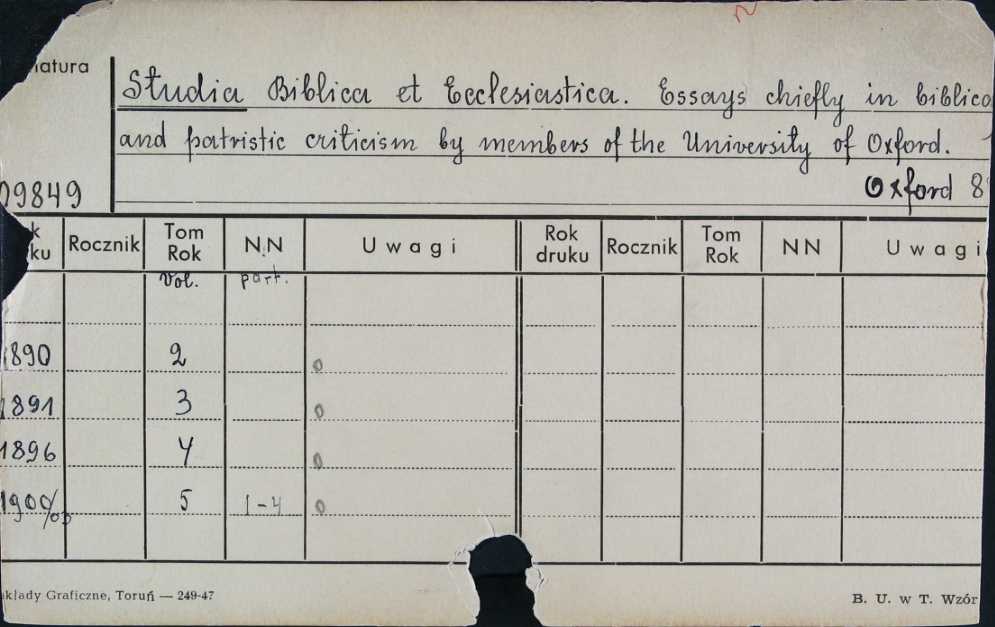 atura
Studia Biblica et Ecclesiastica. Essays chiefly in biblica
and patristic criticism by members of the University of Oxford.
09849
Oxford 8
k
ku Rocznik Tom Rok NN Uwagi Rok druku Rocznik Tom Rok NN Uwagi
Vol. part.
1890 2 0
1891 3 0
1896 4 0
1900/03 5 1-4 0
kłady Graficzne, Toruń — 249-47
B. U. w T. Wzór